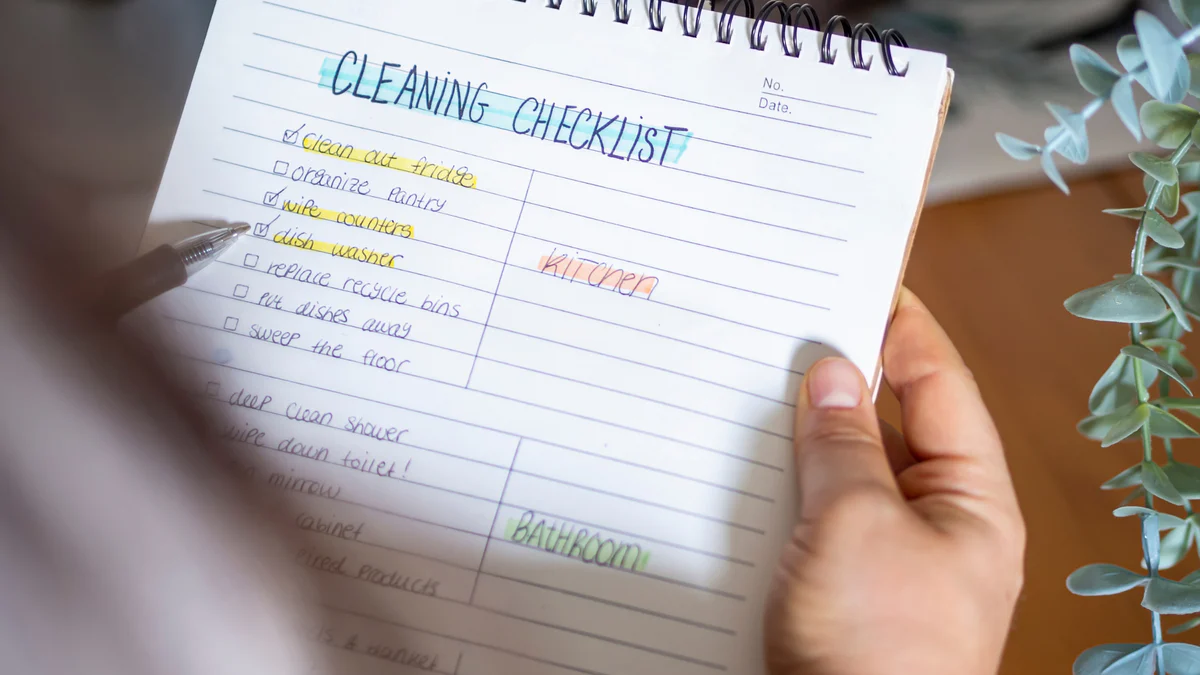 No.
Date.
CLEANING CHECKLIST
clean out fridge
organize pantry
wipe counters
dish washer
replace recycle bins
put dishes away
sweep the floor
kitchen
deep clean shower
wipe down toilet!
mirrow
cabinet
products
BATHROOM
&